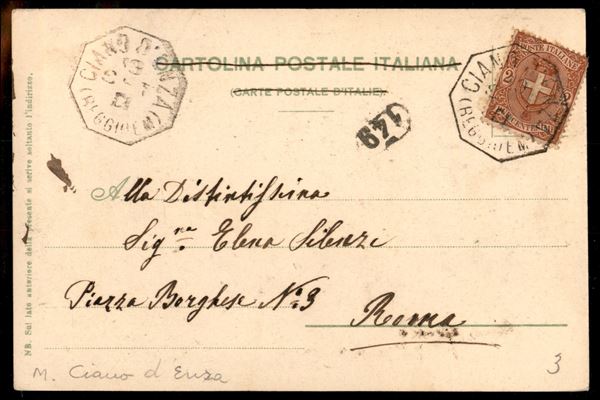 CIANO D'ENZA
(REGGIO EM)
CARTOLINA POSTALE ITALIANA
(CARTE POSTALE D'ITALIE)
POSTE ITALIANE
2 2
CENTESIMI
CIANO
(REGGIO EM
149
Alla Distintissima
Sig.na Elena Silenzi
Piazza Borghese N.° 3
Roma
NB. Sul lato anteriore della presente si scrive soltanto l'indirizzo.
M. Ciano d'Enza
3